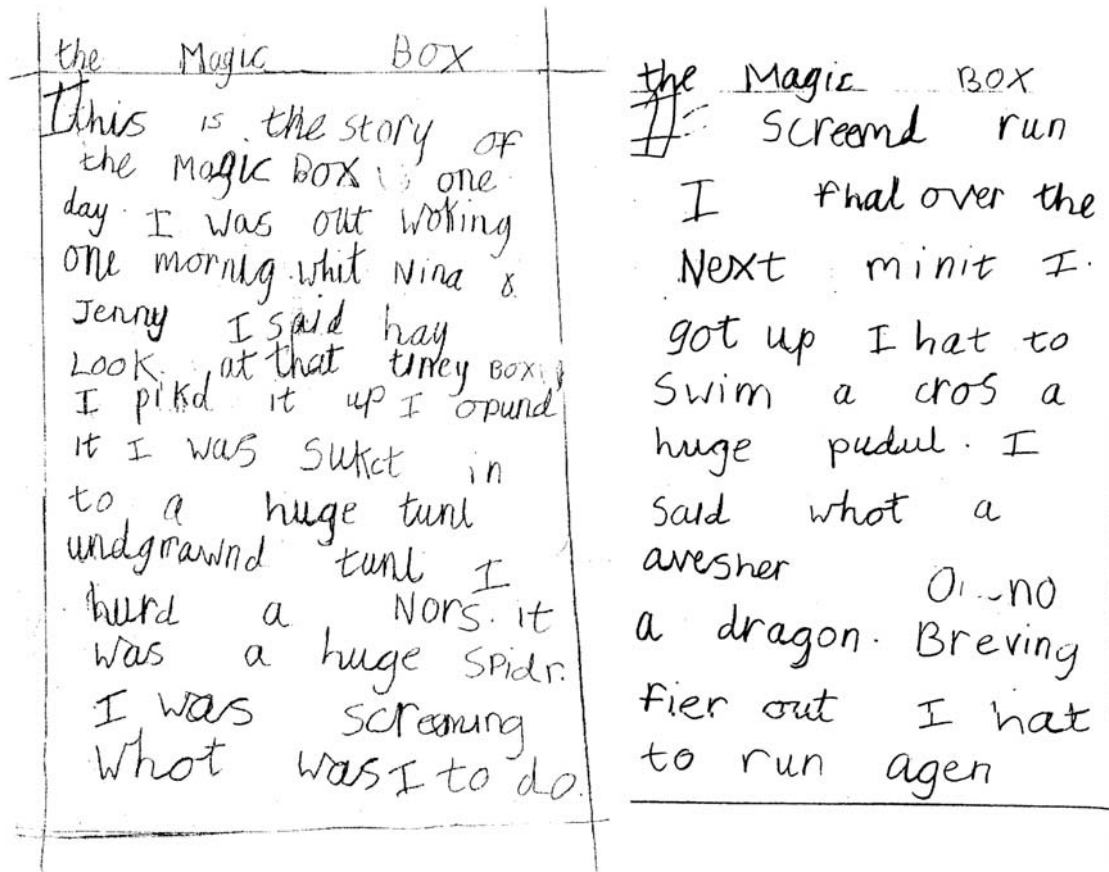 the Magic BOX
this is the story of
the Magic BOX one
day. I was out woking
one mornig whit Nina &
Jenny I said hay
LOOK at that tiney BOX
I pikd it up I opund
it I was sukct in
to a huge tunl
undgrrawnd tunl I
hurd a Nors. it
was a huge Spidr.
I was screaming
whot was I to do.
the Magic BOX
Screemd run
I fhal over the
Next minit I.
got up I hat to
Swim a cros a
huge pudul. I
said whot a
avesher no
a dragon. Breving
fier out I hat
to run agen